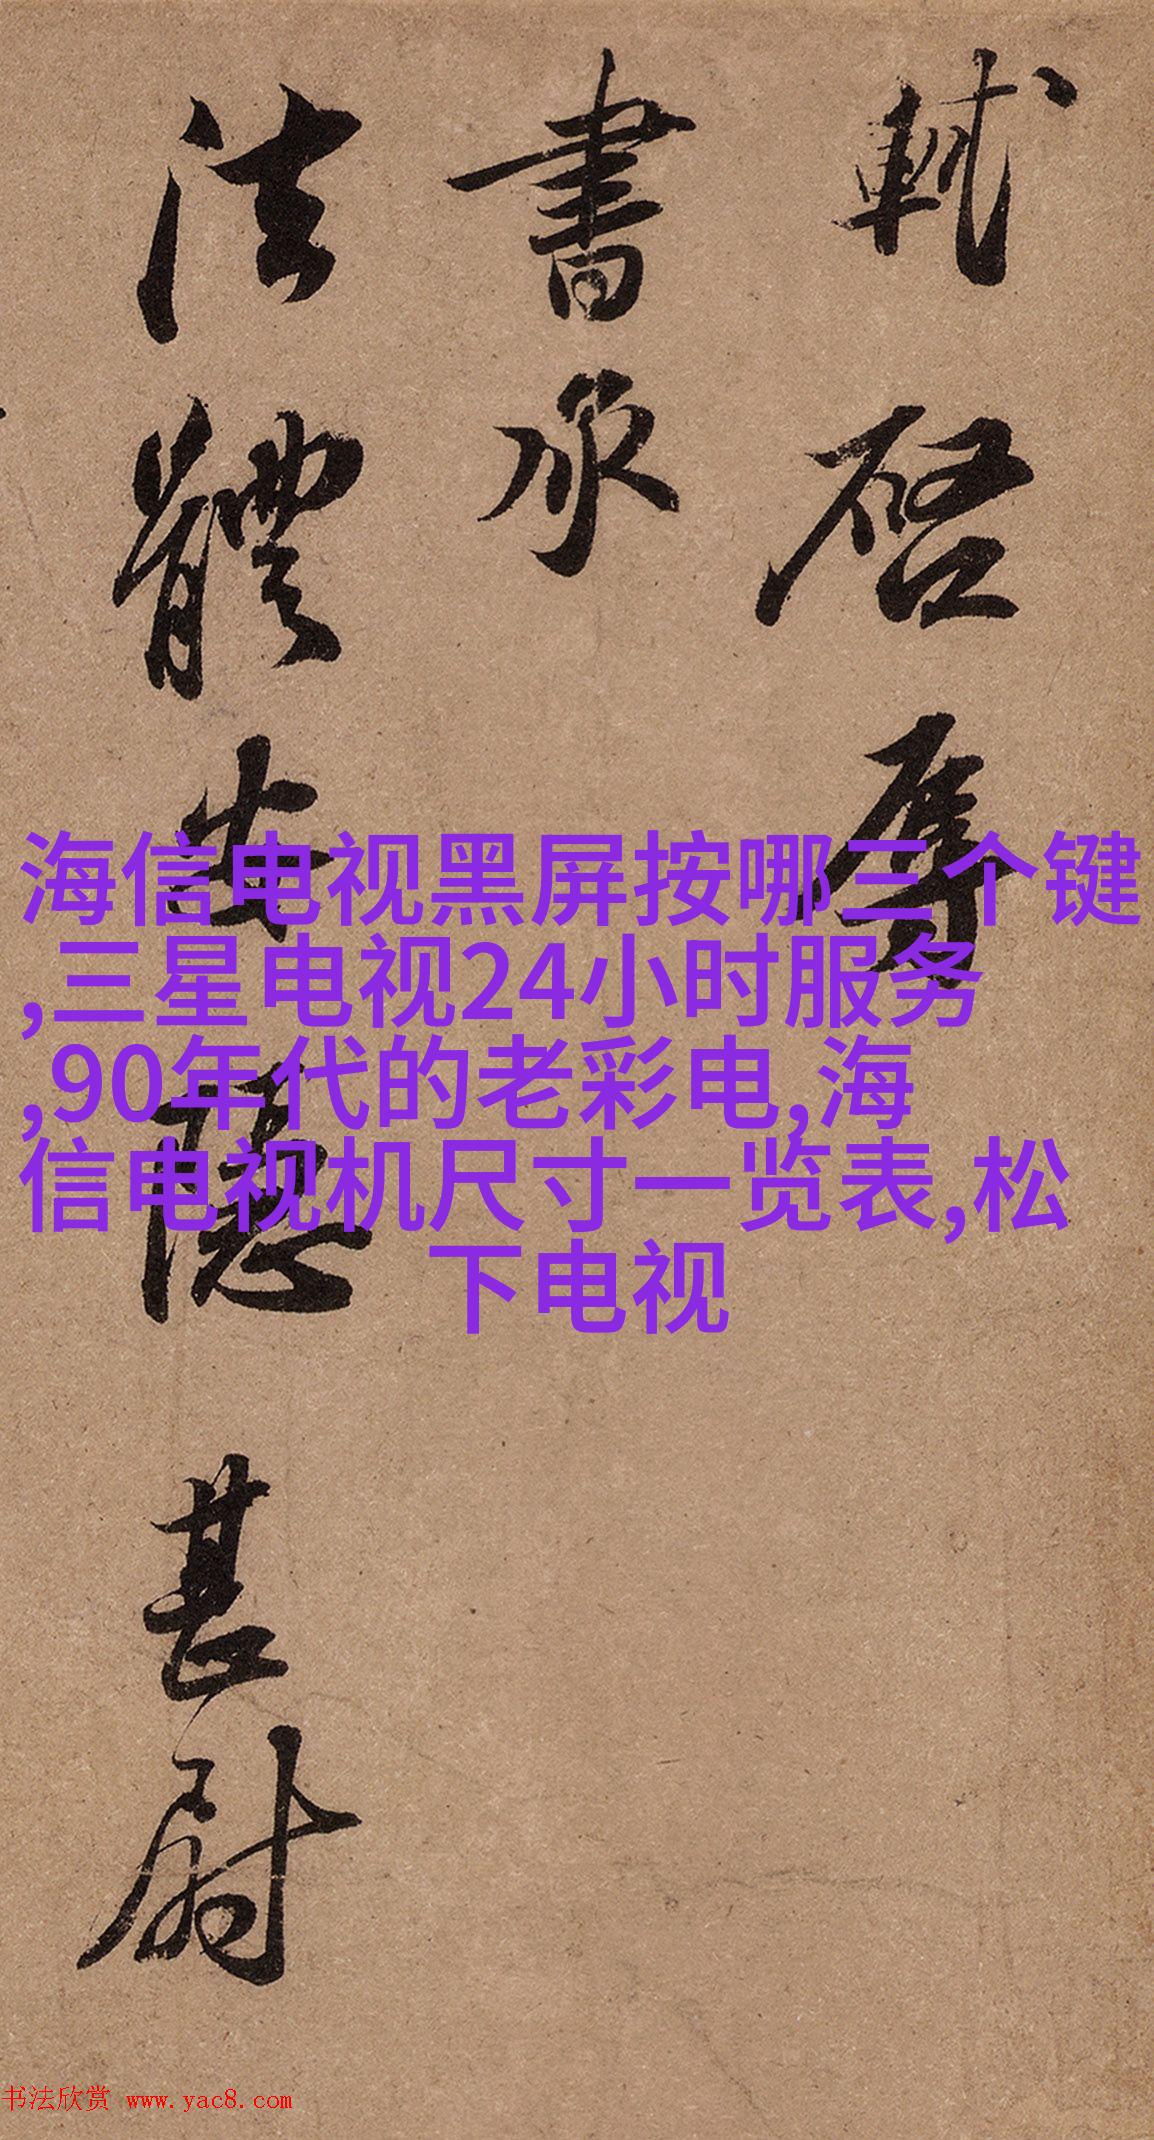 軾啓辱
書承
法體安隱甚慰
海信电视黑屏按哪三个键
,三星电视24小时服务
,90年代的老彩电,海
信电视机尺寸一览表,松
下电视
书法欣赏 www.yac8.com